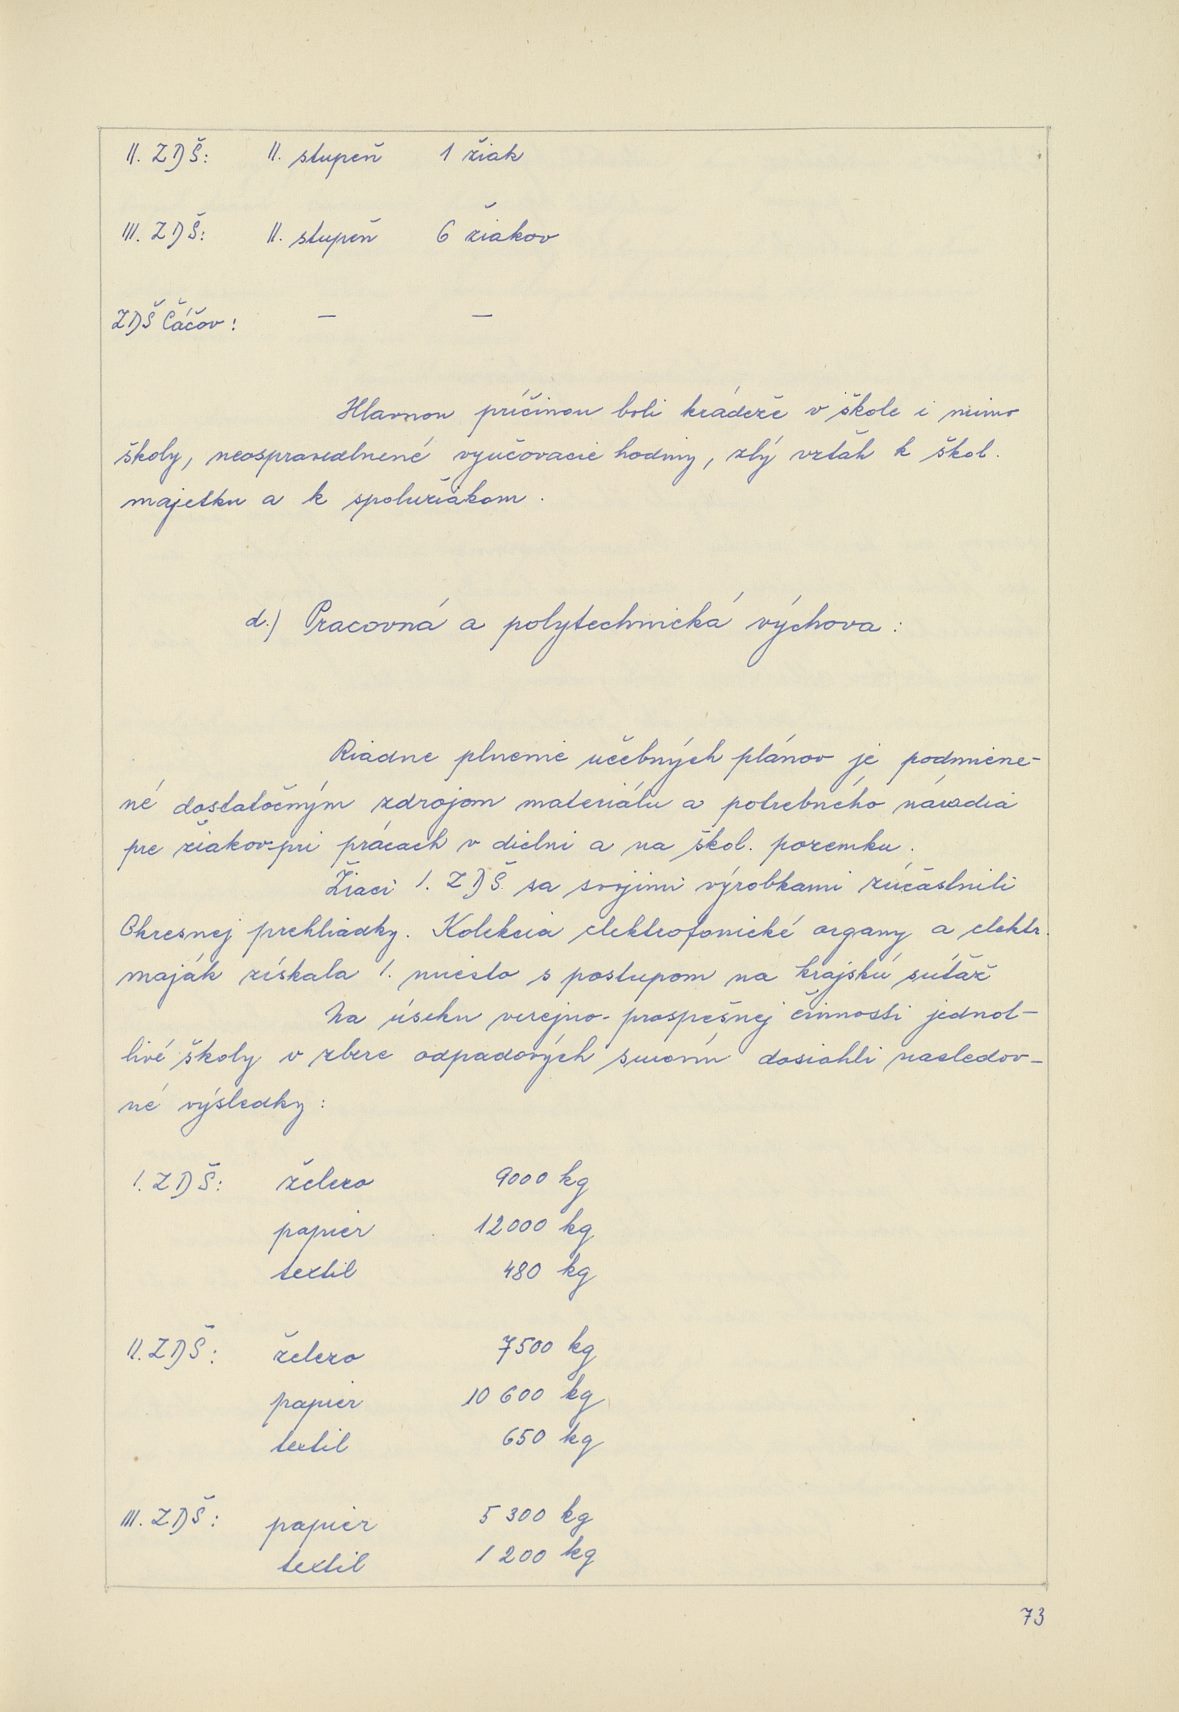 II. ZDŠ: II. stupeň 1 žiak
III. ZDŠ: II. stupeň 6 žiakov
ZDŠ Čáčov: — —
Hlavnou príčinou boli krádeže v škole i mimo
školy, neospravedlnené vyučovacie hodiny, zlý vzťah k škol.
majetku a k spolužiakom.
d.) Pracovná a polytechnická výchova:
Riadne plnenie učebných plánov je podmiene-
né dostatočným zdrojom materiálu a potrebného náradia
pre žiakov pri prácach v dielni a na škol. pozemku.
Žiaci I. ZDŠ sa svojimi výrobkami zúčastnili
Okresnej prehliadky. Kolekcia elektrofonické organy a elektr.
maják získala 1. miesto s postupom na krajskú súťaž
Na úseku verejno-prospešnej činnosti jednot-
livé školy v zbere odpadových surovín dosiahli nasledov-
né výsledky:
I. ZDŠ: železo 9000 kg
papier 12000 kg
textil 480 kg
II. ZDŠ: železo 7500 kg
papier 10 600 kg
textil 650 kg
III. ZDŠ: papier 5 300 kg
textil 1 200 kg
73